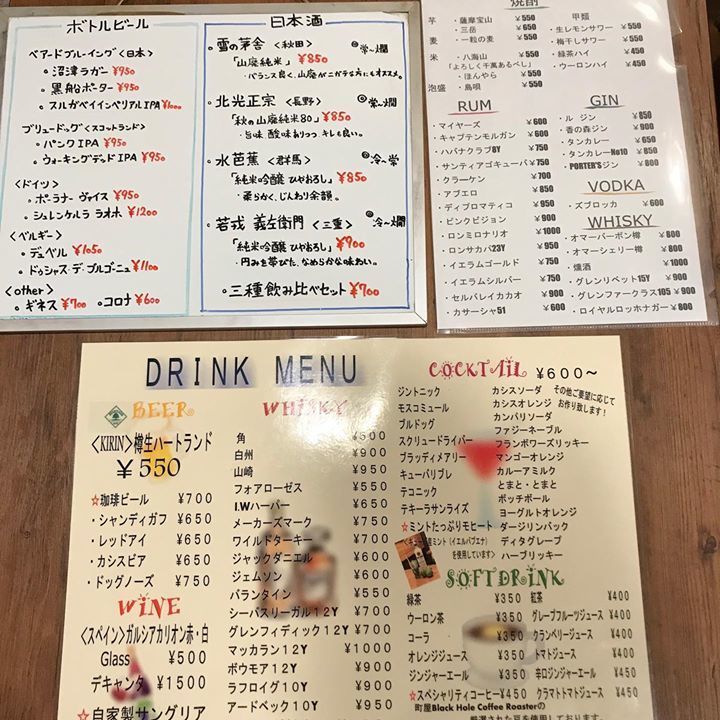 ボトルビール
ベアードブルーイング〈日本〉
・沼津ラガー ¥950
・黒船ポーター ¥950
・スルガベイインペリアルIPA ¥1000
ブリュードッグ〈スコットランド〉
・パンクIPA ¥950
・ウォーキングデッドIPA ¥950
〈ドイツ〉
・ポーラナー ヴァイス ¥950
・シュレンケルラ ラオホ ¥1200
〈ベルギー〉
・デュベル ¥1050
・ドゥシャス・デ・ブルゴーニュ ¥1100
〈other〉
・ギネス ¥700 ・コロナ ¥600
日本酒
・雪の茅舎〈秋田〉 常~燗
「山廃純米」 ¥850
・バランス良く、山廃がニガテな方にもオススメ。
・北光正宗〈長野〉 常~燗
「秋の山廃純米80」 ¥850
・旨味 酸味ありつつ、キレも良い。
・水芭蕉〈群馬〉 冷~常
「純米吟醸 ひやおろし」 ¥850
・柔らかく、じんわり余韻。
・若戎 義左衛門〈三重〉 冷~燗
「純米吟醸 ひやおろし」 ¥900
・円みを帯びた、なめらかな味わい。
・三種飲み比べセット ¥900
焼酎
芋 ・薩摩宝山 ¥550
・三岳 ¥650
麦 ・一粒の麦 ¥550
米 ・八海山
「よろしく千萬あるべし」 ¥550
・ほんやら ¥550
泡盛 ・島唄 ¥550
甲類
・生レモンサワー ¥550
・梅干しサワー ¥550
・緑茶ハイ ¥450
・ウーロンハイ ¥400
RUM
・マイヤーズ ¥600
・キャプテンモルガン ¥600
・ハバナクラブ8Y ¥750
・サンティアゴキューバ ¥750
・クラーケン ¥700
・アブエロ ¥550
・ディプロマティコ ¥900
・ピンクピジョン ¥900
・ロンミロナリオ ¥1000
・ロンサカパ23Y ¥900
・イエラムゴールド ¥750
・イエラムシルバー ¥750
・セルバレイカカオ ¥900
・カサーシャ51 ¥600
GIN
・ル ジン ¥850
・香の森ジン ¥900
・タンカレー ¥650
・タンカレーNo10 ¥800
・PORTER'Sジン ¥800
VODKA
・ズブロッカ ¥600
WHISKY
・オマーバーボン樽 ¥800
・オマーシェリー樽 ¥800
・燻酒 ¥1000
・グレンリベット15Y ¥900
・グレンファークラス105 ¥900
・ロイヤルロッホナガー ¥800
DRINK MENU
BEER
〈KIRIN〉樽生ハートランド
¥550
☆珈琲ビール ¥700
・シャンディガフ ¥650
・レッドアイ ¥650
・カシスビア ¥650
・ドッグノーズ ¥750
WINE
〈スペイン〉ガルシアカリオン赤・白
Glass ¥500
デキャンタ ¥1500
☆自家製サングリア
WHISKY
角 ¥500
白州 ¥900
山崎 ¥950
フォアローゼス ¥550
I.Wハーパー ¥650
メーカーズマーク ¥750
ワイルドターキー ¥700
ジャックダニエル ¥600
ジェムソン ¥600
バランタイン ¥550
シーバスリーガル12Y ¥700
グレンフィディック12Y ¥700
マッカラン12Y ¥1000
ボウモア12Y ¥800
ラフロイグ10Y ¥800
アードベック10Y ¥900
COCKTAIL ¥600~
その他ご要望に応じて
お作り致します!
ジントニック
モスコミュール
ブルドッグ
スクリュードライバー
ブラッディメアリー
キューバリブレ
テコニック
テキーラサンライズ
☆ミントたっぷりモヒート
<キューバ産ミント(イエルバブエナ)
を使用しています>
カシスソーダ
カシスオレンジ
カンパリソーダ
ファジーネーブル
フランボワーズリッキー
マンゴーオレンジ
カルーアミルク
とまと・とまと
ポッチボール
ヨーグルトオレンジ
ダージリンバック
ディタグレープ
ハーブリッキー
SOFTDRINK
緑茶 ¥350
ウーロン茶 ¥350
コーラ ¥350
オレンジジュース ¥350
ジンジャーエール ¥350
☆スペシャリティコーヒー¥450
町屋Black Hole Coffee Roasterの
厳選された豆を使用しています。
紅茶 ¥400
グレープフルーツジュース ¥400
クランベリージュース ¥400
トマトジュース ¥400
辛口ジンジャーエール ¥400
クラマトトマトジュース ¥400